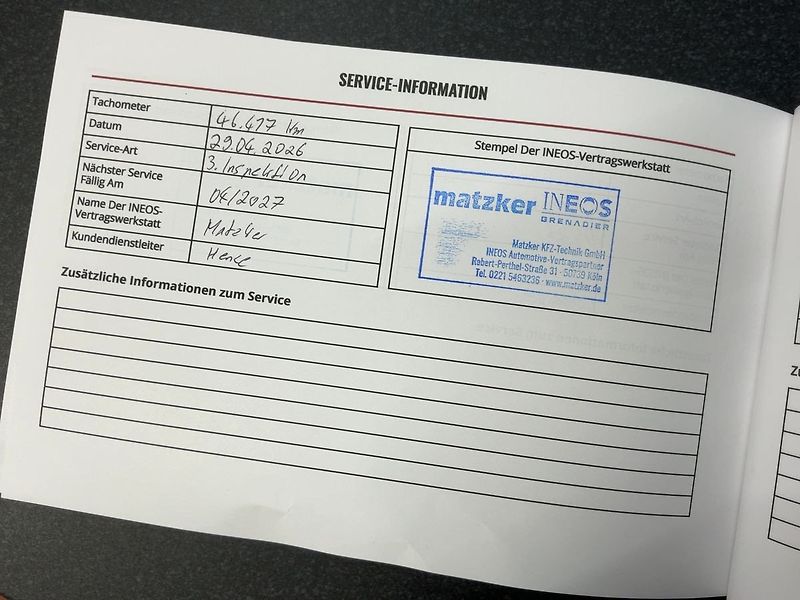 SERVICE-INFORMATION
Tachometer 46.417 km
Datum 29.04.2026
Service-Art 3. Inspektion
Nächster Service
Fällig Am 04/2027
Name Der INEOS-
Vertragswerkstatt Matzker
Kundendienstleiter
Stempel Der INEOS-Vertragswerkstatt
matzker INEOS
GRENADIER
Matzker KFZ-Technik GmbH
INEOS Automotive-Vertragspartner
Robert-Perthel-Straße 31 · 50739 Köln
Tel. 0221 5463236 · www.matzker.de
Zusätzliche Informationen zum Service
Zu